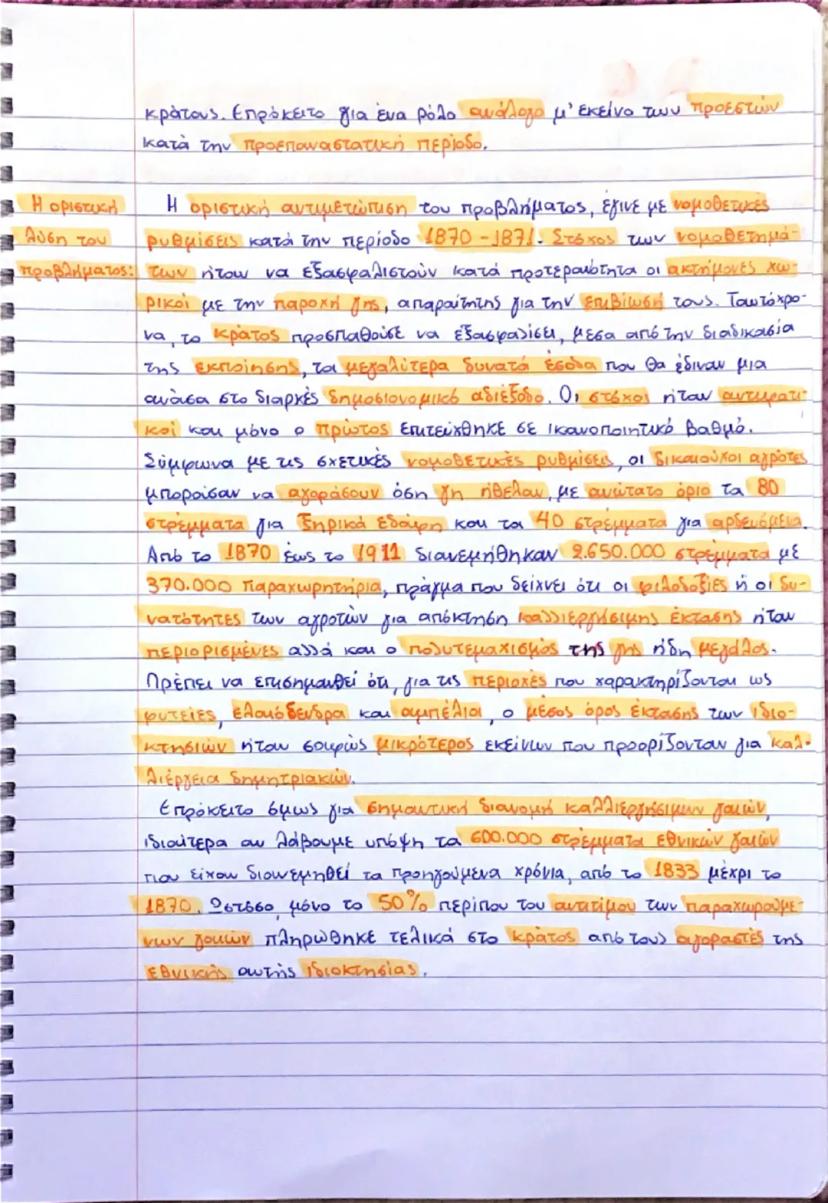 κράτους. Επρόκειτο για ένα ρόλο ανάλογο μ' εκείνο των προεστών
κατά την προεπαναστατική περίοδο.
Η οριστική
λύση του
προβλήματος:
Η οριστική αντιμετώπιση του προβλήματος, έγινε με νομοθετικές
ρυθμίσεις κατά την περίοδο 1870-1871. Στόχος των νομοθετημά-
των ήταν να εξασφαλιστούν κατά προτεραιότητα οι ακτήμονες χω-
ρικοί με την παροχή γης, απαραίτητης για την επιβίωσή τους. Ταυτόχρο-
να, το κράτος προσπαθούσε να εξασφαλίσει, μέσα από την διαδικασία
της εκποίησης, τα μεγαλύτερα δυνατά έσοδα που θα έδιναν μια
ανάσα στο διαρκές δημοσιονομικό αδιέξοδο. Οι στόχοι ήταν αντιφατι-
κοί και μόνο ο πρώτος επιτεύχθηκε σε ικανοποιητικό βαθμό.
Σύμφωνα με τις σχετικές νομοθετικές ρυθμίσεις, οι δικαιούχοι αγρότες
μπορούσαν να αγοράσουν όση γη ήθελαν, με ανώτατο όριο τα 80
στρέμματα για ξηρικά εδάφη και τα 40 στρέμματα για αρδευόμενα.
Από το 1870 έως το 1911 διανεμήθηκαν 2.650.000 στρέμματα με
370.000 παραχωρητήρια, πράγμα που δείχνει ότι οι φιλοδοξίες ή οι δυ-
νατότητες των αγροτών για απόκτηση καλλιεργήσιμης έκτασης ήταν
περιορισμένες αλλά και ο πολυτεμαχισμός της γης ήδη μεγάλος.
Πρέπει να επισημανθεί ότι, για τις περιοχές που χαρακτηρίζονται ως
φυτείες, ελαιόδενδρα και αμπέλια, ο μέσος όρος έκτασης των ιδιο-
κτησιών ήταν σαφώς μικρότερος εκείνων που προορίζονταν για καλ-
λιέργεια δημητριακών.
Επρόκειτο όμως για σημαντική διανομή καλλιεργήσιμων γαιών,
ιδιαίτερα αν λάβουμε υπόψη τα 600.000 στρέμματα εθνικών γαιών
που είχαν διανεμηθεί τα προηγούμενα χρόνια, από το 1833 μέχρι το
1870. Ωστόσο, μόνο το 50% περίπου του αντιτίμου των παραχωρούμε-
νων γαιών πληρώθηκε τελικά στο κράτος από τους αγοραστές της
εθνικής αυτής ιδιοκτησίας.